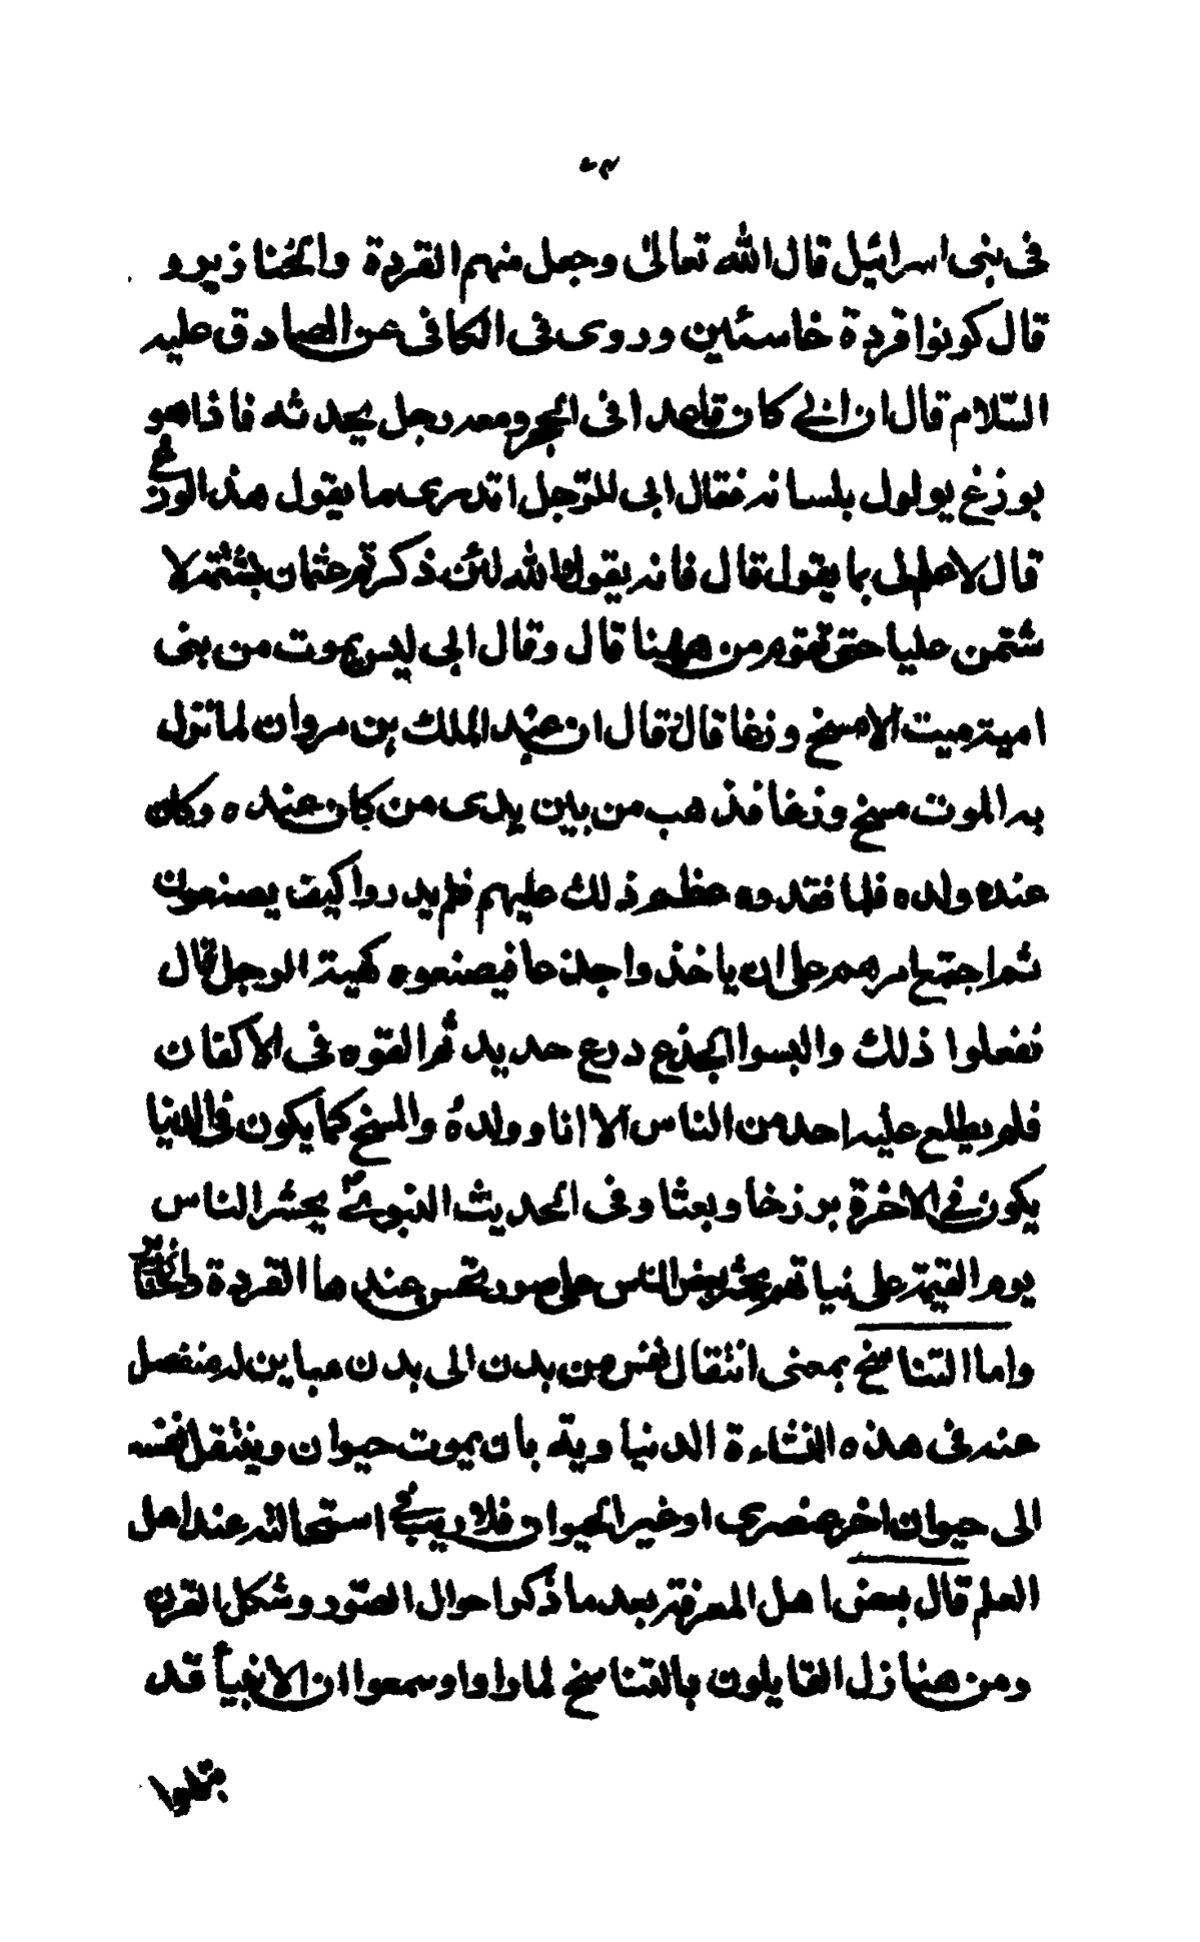 في بنى اسرائيل قال الله تعالى وجعل منهم القردة والخنازير و
قال كونوا قردة خاسئين وروى في الكافي عن الصادق عليه
السّلام قال ان ابي كان قاعدا في الحجر ومعه رجل يحدثه فاذا هو
بوزغ يولول بلسانه فقال ابى للرّجل اتدرى ما يقول هذا الوزغ
قال لا علم لى بما يقول قال فانه يقول والله لئن ذكرتم عثمان بشتمه لا
شتمن عليا حتى تقوم من ههنا قال وقال ابى ليس يموت من بنى
امية ميت الا مسخ وزغا قال قال ان عبد الملك بن مروان لما نزل
به الموت مسخ وزغا فذهب من بين يدى من كان عنده وكان
عنده ولده فلما فقدوه عظم ذلك عليهم فلم يدروا كيف يصنعون
ثم اجتمع امرهم على ان ياخذوا جذعا فيصنعوه كهيئة الرجل قال
ففعلوا ذلك والبسوا الجذع درع حديد ثم القوه في الاكفان
فلم يطلع عليه احد من الناس الا انا وولده والمسخ كما يكون في الدنيا
يكون في الاخرة برزخا وبعثا وفي الحديث النبوي يحشر الناس
يوم القيمة على نياتهم يحشر بعض الناس على صور تحسن عندها القردة والخنازير
واما التناسخ بمعنى انتقال نفس من بدن الى بدن مباين له منفصل
عنه في هذه النشاءة الدنياوية بان يموت حيوان وينتقل نفسه
الى حيوان اخر عنصرى او غير الحيوان فلا ريب في استحالته عند اهل
العلم قال بعض اهل المعرفة بعد ما ذكر احوال الصّور وشكل القرن
ومن هنا زل القايلون بالتناسخ لما راوا وسمعوا ان الانبيأ قد